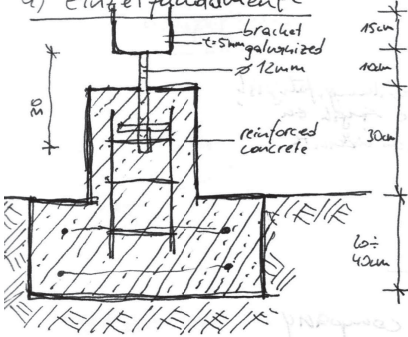 a) Einzelfundament
bracket
t=5mm galvanized
ø 12mm
15cm
10cm
30
reinforced
concrete
30cm
20÷
40cm